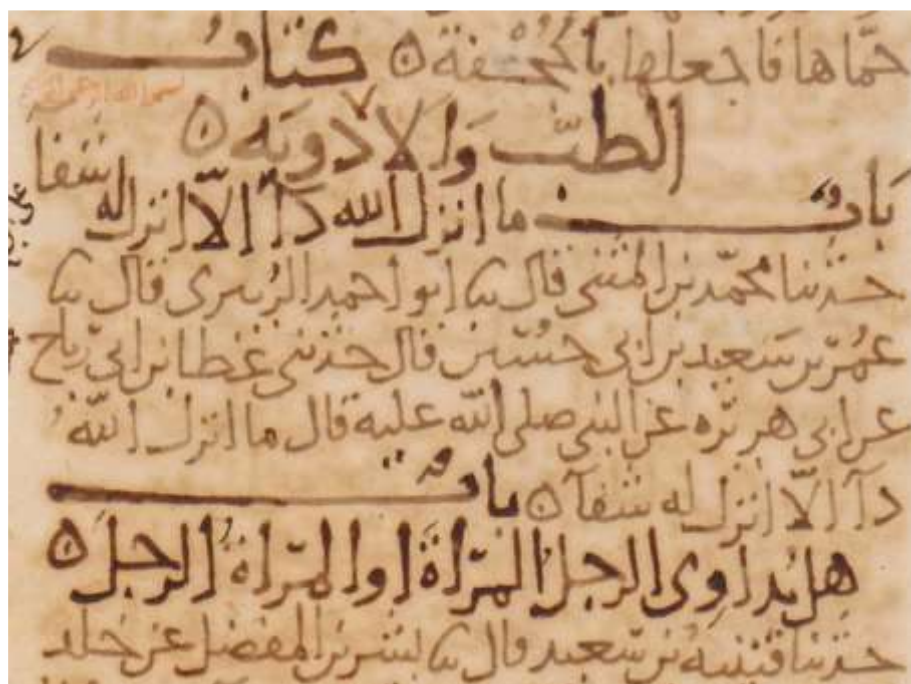 حمّاها فاجعلها بالجُحْفة ٥ كتابُ
بسم الله الرحمن الرحيم
الطبّ وَالادويَه ٥
بَابُ ما انزل الله دآ الّا انزل له شفا
حدثنا محمّد بن المثنى قال ثنا ابو احمد الزبيرى قال ثنا
عمر بن سَعيد بن ابى حسُين قال حدثنى عَطا بن ابى رباح
عن ابى هريره عن النبى صلى الله عليه قال ما انزل اللهُ
دآ الّا انزل له شفآ ٥ بابُ
هل يُداوِى الرجلُ المرّاةَ او المرّاةُ الرجلَ ٥
حدثنا قتيبه بن سَعيد قال ثنا بشر بن المفضل عن خلد